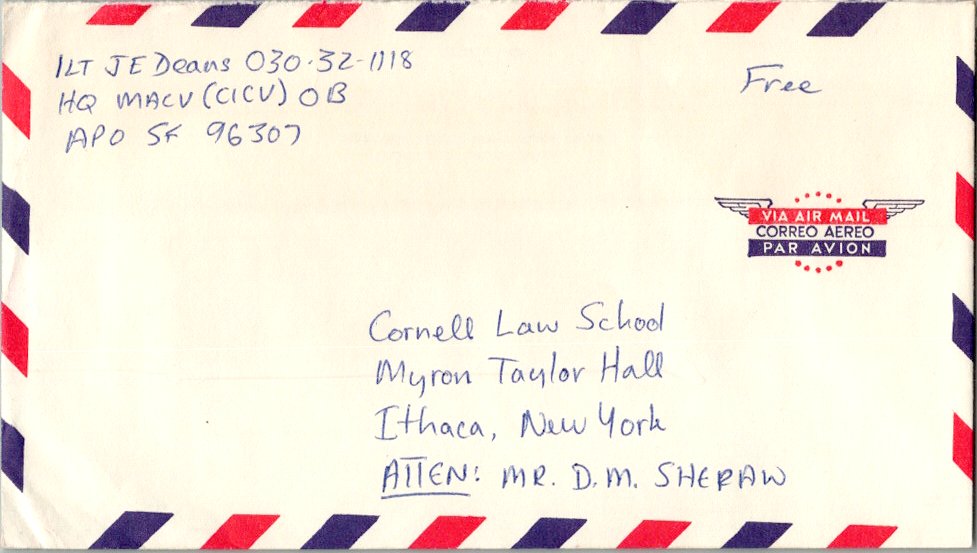 1LT JE Deans 030-32-1118
HQ MACV (CICV) OB
APO SF 96307
Free
VIA AIR MAIL
CORREO AEREO
PAR AVION
Cornell Law School
Myron Taylor Hall
Ithaca, New York
ATTEN: MR. D.M. SHERAW